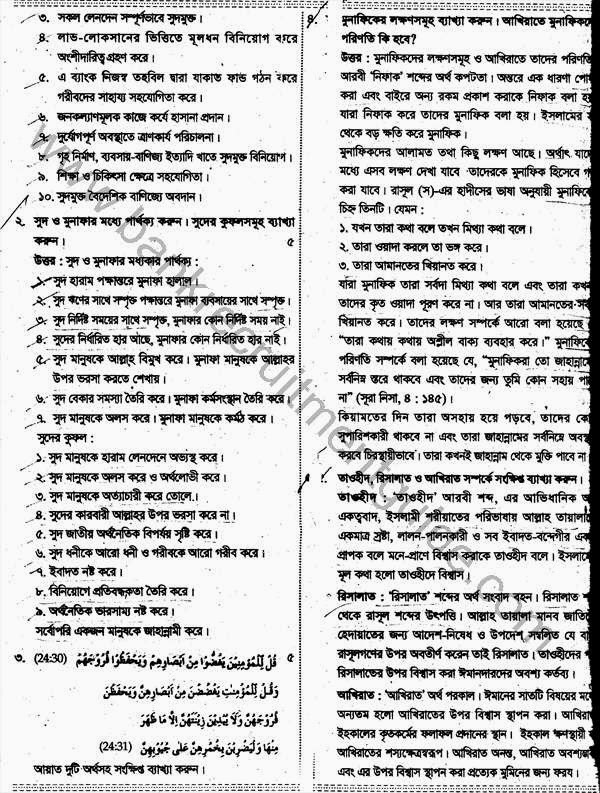 ৩. সকল লেনদেন সম্পূর্ণভাবে সুদমুক্ত।
৪. লাভ-লোকসানের ভিত্তিতে মূলধন বিনিয়োগ করে
অংশীদারিত্ব গ্রহণ করে।
৫. এ ব্যাংক নিজস্ব তহবিল দ্বারা যাকাত ফান্ড গঠন করে
গরীবদের সাহায্য সহযোগিতা করে।
৬. জনকল্যাণমূলক কাজে কর্যে হাসানা প্রদান।
৭. দুর্যোগপূর্ণ অবস্থাতে ত্রাণকার্য পরিচালনা।
৮. গৃহ নির্মাণ, ব্যবসায়-বাণিজ্য ইত্যাদি খাতে সুদমুক্ত বিনিয়োগ।
৯. শিক্ষা ও চিকিৎসা ক্ষেত্রে সহযোগিতা।
১০. সুদমুক্ত বৈদেশিক বাণিজ্যে অবদান।
২. সুদ ও মুনাফার মধ্যে পার্থক্য করুন। সুদের কুফলসমূহ ব্যাখ্যা
করুন। ৫
উত্তর : সুদ ও মুনাফার মধ্যকার পার্থক্য :
১. সুদ হারাম পক্ষান্তরে মুনাফা হালাল।
২. সুদ ঋণের সাথে সম্পৃক্ত পক্ষান্তরে মুনাফা ব্যবসায়ের সাথে সম্পৃক্ত।
৩. সুদ নির্দিষ্ট সময়ের সাথে সম্পৃক্ত, মুনাফার কোন নির্দিষ্ট সময় নাই।
৪. সুদের নির্ধারিত হার আছে, মুনাফার কোন নির্ধারিত হার নাই।
৫. সুদ মানুষকে আল্লাহ বিমুখ করে। মুনাফা মানুষকে আল্লাহর
উপর ভরসা করতে শেখায়।
৬. সুদ বেকার সমস্যা তৈরি করে। মুনাফা কর্মসংস্থান তৈরি করে।
৭. সুদ মানুষকে অলস করে। মুনাফা মানুষকে কর্মঠ করে।
সুদের কুফল :
১. সুদ মানুষকে হারাম লেনদেনে অভ্যস্ত করে।
২. সুদ মানুষকে অলস করে ও অর্থলোভী করে।
৩. সুদ মানুষকে অত্যাচারী করে তোলে।
৪. সুদের কারবারী আল্লাহর উপর ভরসা করে না।
৫. সুদ জাতীয় অর্থনৈতিক বিপর্যয় সৃষ্টি করে।
৬. সুদ ধনীকে আরো ধনী ও গরীবকে আরো গরীব করে।
৭. ইবাদত নষ্ট করে।
৮. বিনিয়োগে প্রতিবন্ধকতা তৈরি করে।
৯. অর্থনৈতিক ভারসাম্য নষ্ট করে।
সর্বোপরি একজন মানুষকে জাহান্নামী করে।
৩. (24:30) قُلْ لِّلْمُؤْمِنِيْنَ يَغُضُّوْا مِنْ اَبْصَارِهِمْ وَيَحْفَظُوْا فُرُوْجَهُمْ ৫
وَقُلْ لِّلْمُؤْمِنٰتِ يَغْضُضْنَ مِنْ اَبْصَارِهِنَّ وَيَحْفَظْنَ
فُرُوْجَهُنَّ وَلَا يُبْدِيْنَ زِيْنَتَهُنَّ اِلَّا مَا ظَهَرَ
مِنْهَا وَلْيَضْرِبْنَ بِخُمُرِهِنَّ عَلٰى جُيُوْبِهِنَّ (24:31)
আয়াত দুটি অর্থসহ সংক্ষিপ্ত ব্যাখ্যা করুন।
৪. মুনাফিকের লক্ষণসমূহ ব্যাখ্যা করুন। আখিরাতে মুনাফিকদে
পরিণতি কি হবে?
উত্তর : মুনাফিকদের লক্ষণসমূহ ও আখিরাতে তাদের পরিণতি
আরবী 'নিফাক' শব্দের অর্থ কপটতা। অন্তরে এক ধারণা পো
করা এবং বাইরে অন্য রকম প্রকাশ করাকে নিফাক বলা হয়
যারা নিফাক করে তাদের মুনাফিক বলা হয়। ইসলামের স
থেকে বড় ক্ষতি করে মুনাফিক।
মুনাফিকদের আলামত তথা কিছু লক্ষণ আছে। অর্থাৎ যাদে
মধ্যে এসব লক্ষণ দেখা যাবে তাদেরকে মুনাফিক হিসেবে গ
করা যাবে। রাসূল (স)-এর হাদীসের ভাষা অনুযায়ী মুনাফিকে
চিহ্ন তিনটি। যেমন :
১. যখন তারা কথা বলে তখন মিথ্যা কথা বলে।
২. তারা ওয়াদা করলে তা ভঙ্গ করে।
৩. তারা আমানতের খিয়ানত করে।
যারা মুনাফিক তারা সর্বদা মিথ্যা কথা বলে এবং তারা কখন
তাদের কৃত ওয়াদা পূরণ করে না। আর তারা আমানতের-সব
খিয়ানত করে। তাদের লক্ষণ সম্পর্কে আরো বলা হয়েছে
"তারা কথায় কথায় অশ্লীল বাক্য ব্যবহার করে।" মুনাফিকে
পরিণতি সম্পর্কে বলা হয়েছে যে, "মুনাফিকরা তো জাহান্নামে
সর্বনিম্ন স্তরে থাকবে এবং তাদের জন্য তুমি কোন সহায় পা
না" (সূরা নিসা, ৪ : ১৪৫)।
কিয়ামতের দিন তারা অসহায় হয়ে পড়বে, তাদের কো
সুপারিশকারী থাকবে না এবং তারা জাহান্নামের সর্বনিম্নে অবস্থ
করবে চিরস্থায়ীভাবে। তারা কখনই জাহান্নাম থেকে মুক্তি পাবে না
তাওহীদ, রিসালাত ও আখিরাত সম্পর্কে সংক্ষিপ্ত ব্যাখ্যা করুন।
তাওহীদ : 'তাওহীদ' আরবী শব্দ, এর আভিধানিক অ
একত্ববাদ, ইসলামী শরীয়াতের পরিভাষায় আল্লাহ তায়ালা
একমাত্র স্রষ্টা, লালন-পালনকারী ও সব ইবাদত-বন্দেগীর এক
প্রাপক বলে মনে-প্রাণে বিশ্বাস করাকে তাওহীদ বলে। ইসলামে
মূল কথা হলো তাওহীদে বিশ্বাস।
রিসালাত : 'রিসালাত' শব্দের অর্থ সংবাদ বহন। রিসালাত শ
থেকে রাসূল শব্দের উৎপত্তি। আল্লাহ তায়ালা মানব জাতি
হেদায়াতের জন্য আদেশ-নিষেধ ও উপদেশ সম্বলিত যে বা
রাসূলগণের উপর অবতীর্ণ করেন তাই রিসালাত। তাওহীদের প
রিসালাতের উপর বিশ্বাস করা ঈমানদারদের অবশ্য কর্তব্য।
আখিরাত : 'আখিরাত' অর্থ পরকাল। ঈমানের সাতটি বিষয়ের মধ্যে
অন্যতম হলো আখিরাতের উপর বিশ্বাস স্থাপন করা। আখিরা
ইহকালের কৃতকর্মের ফলাফল প্রদানের স্থান। ইহকাল ক্ষণস্থায়ী
আখিরাতের শস্যক্ষেত্রস্বরূপ। আখিরাত অনন্ত, আখিরাত অবশ্যম্ভ
এবং এর উপর বিশ্বাস স্থাপন করা প্রত্যেক মুমিনের জন্য ফরয।
www.bankrecruitmentguide.com